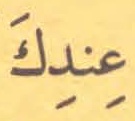 عِندِكَ